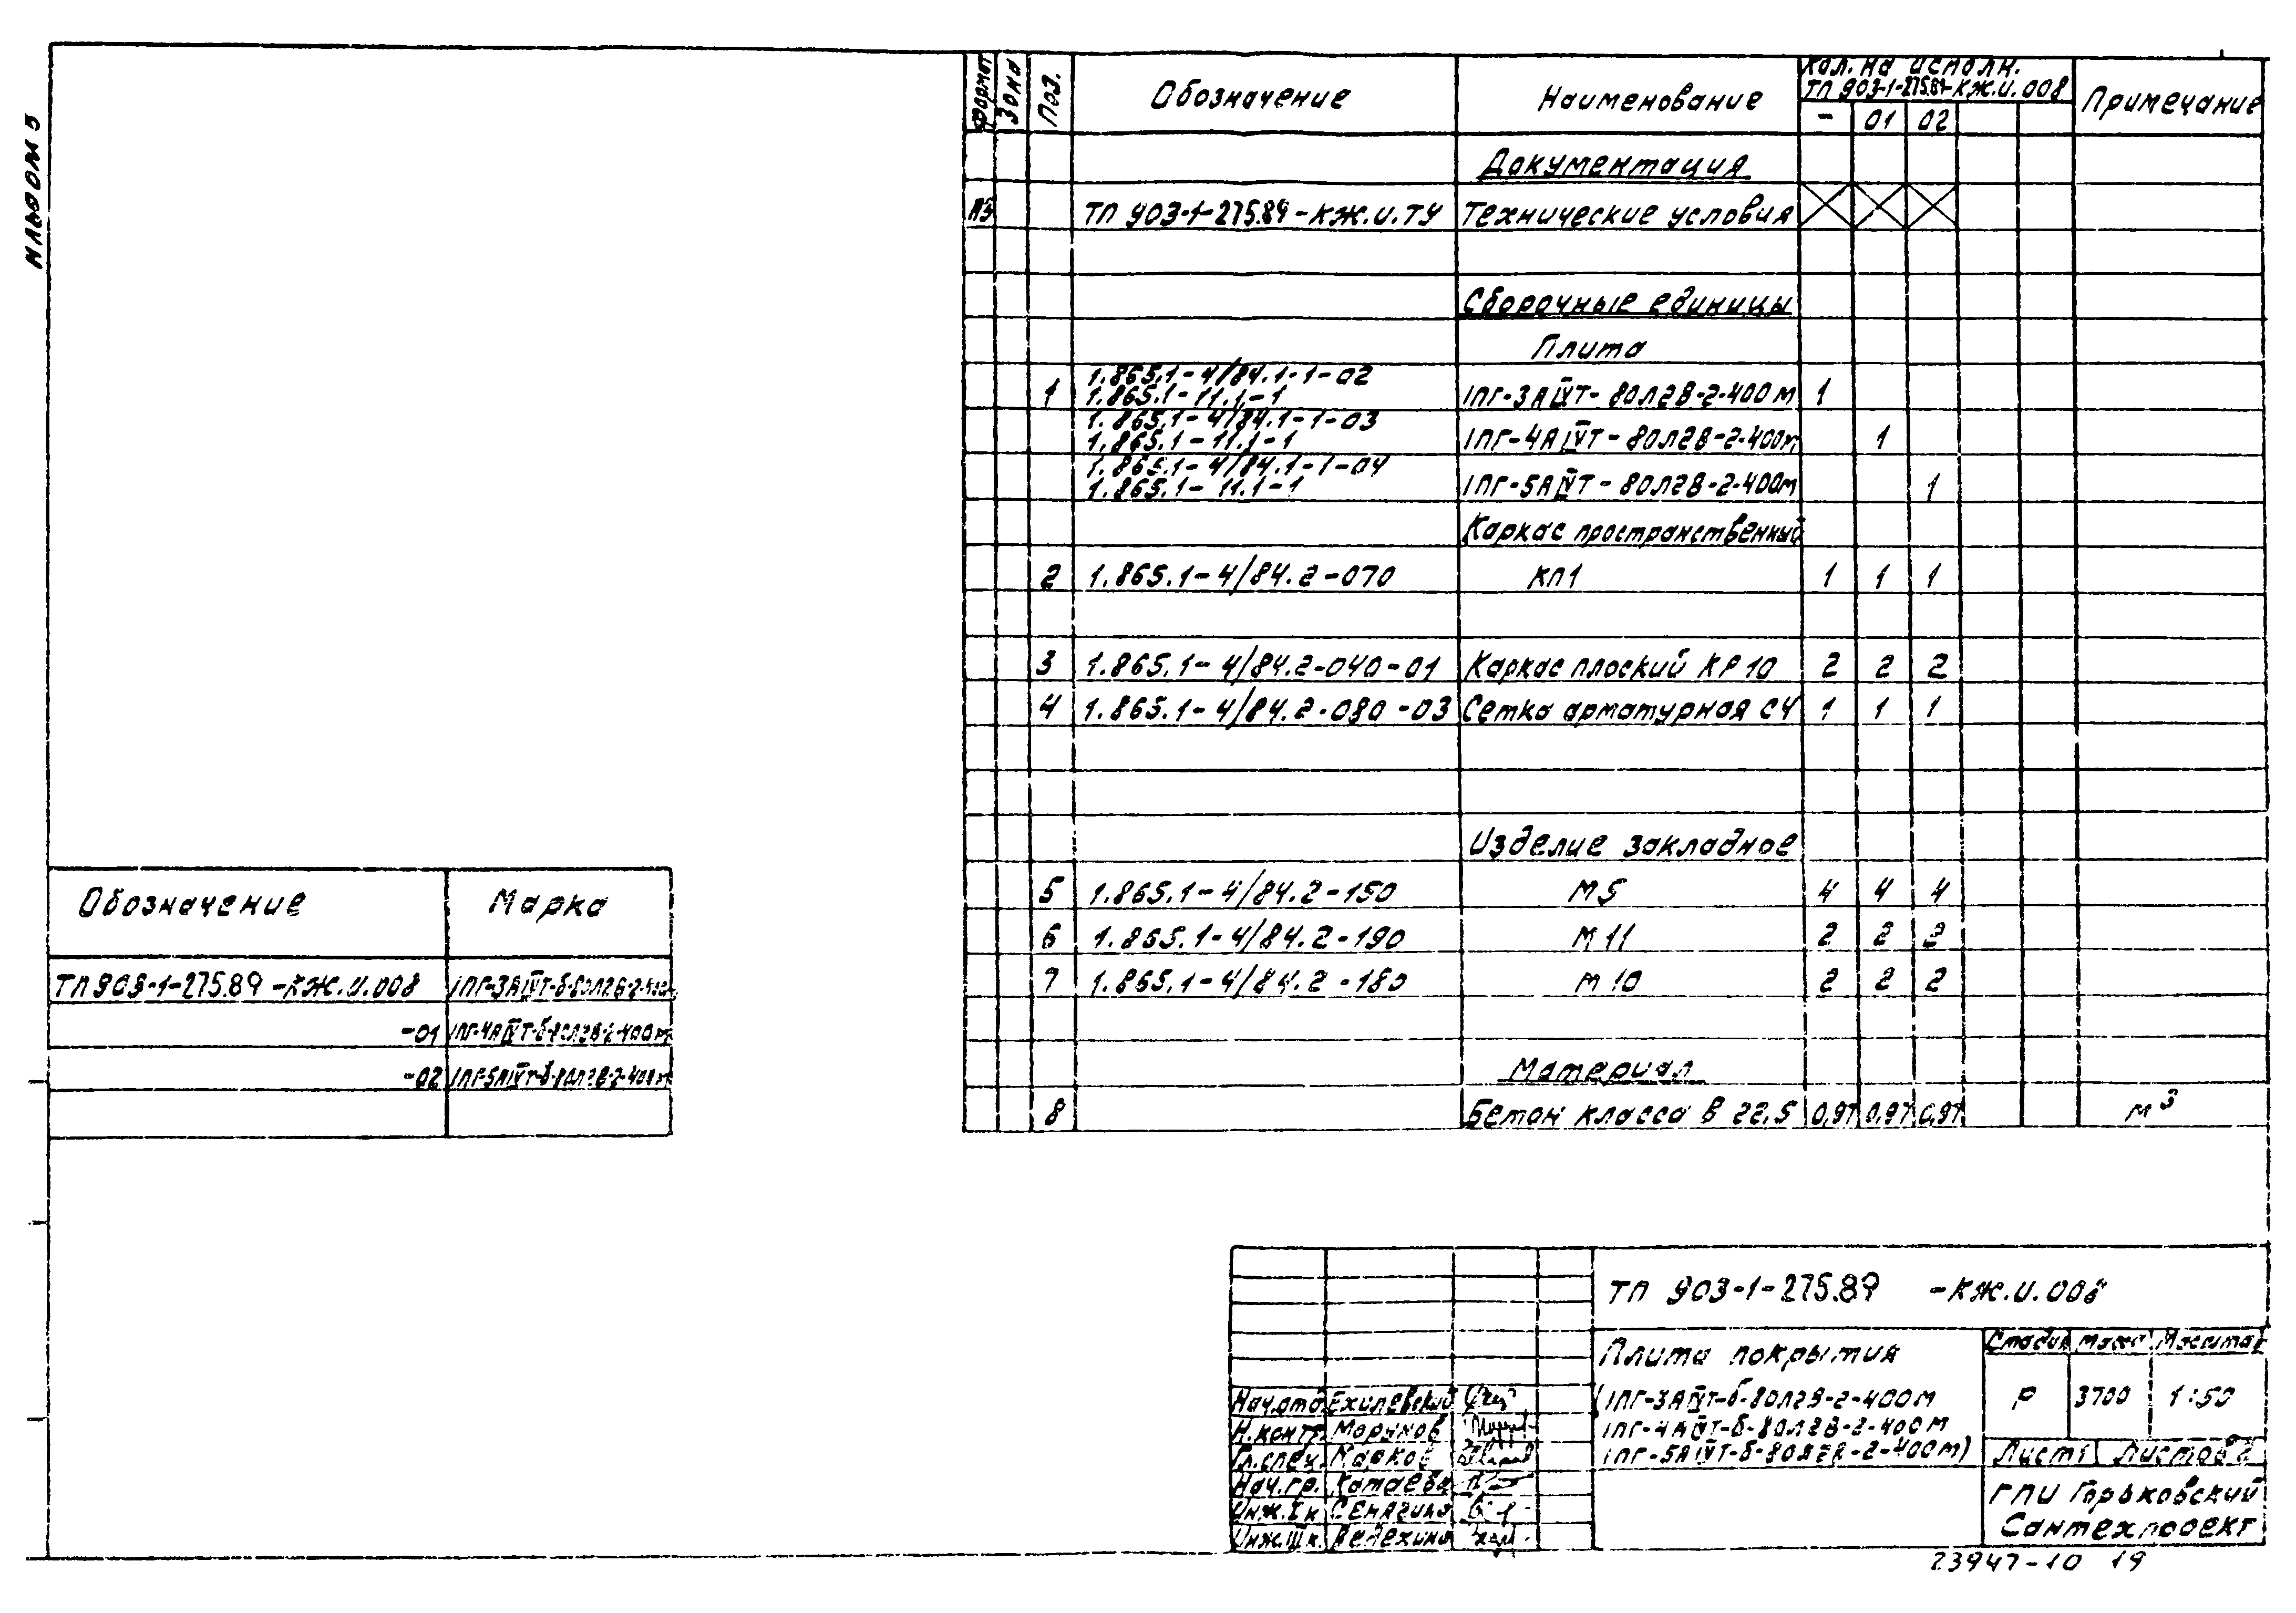 Альбом 5
Формат Зона Поз. Обозначение Наименование Кол. на исполн. Примечание
ТП 903-1-275.89-КЖ.И.008
- 01 02
Документация
А3 ТП 903-1-275.89-КЖ.И.ТУ Технические условия
Сборочные единицы
Плита
1.865.1-4/84.1-1-02
1 1.865.1-11.1-1 1ПГ-3АIVТ-80Л2В-2-400м 1
1.865.1-4/84.1-1-03
1.865.1-11.1-1 1ПГ-4АIVТ-80Л2В-2-400м 1
1.865.1-4/84.1-1-04
1.865.1-11.1-1 1ПГ-5АIVТ-80Л2В-2-400м 1
Каркас пространственный
2 1.865.1-4/84.2-070 КП1 1 1 1
3 1.865.1-4/84.2-040-01 Каркас плоский КР10 2 2 2
4 1.865.1-4/84.2-080-03 Сетка арматурная С4 1 1 1
Изделие закладное
5 1.865.1-4/84.2-150 М5 4 4 4
6 1.865.1-4/84.2-190 М11 2 2 2
7 1.865.1-4/84.2-180 М10 2 2 2
Материал
8 Бетон класса В 22,5 0,97 0,97 0,97 м³
Обозначение Марка
ТП 903-1-275.89-КЖ.И.008 1ПГ-3АIVТ-б-80Л2В-2-400м
-01 1ПГ-4АIVТ-б-80Л2В-2-400м
-02 1ПГ-5АIVТ-б-80Л2В-2-400м
ТП 903-1-275.89 -КЖ.И.008
Плита покрытия
(1ПГ-3АIVТ-б-80Л2В-2-400м
1ПГ-4АIVТ-б-80Л2В-2-400м
1ПГ-5АIVТ-б-80Л2В-2-400м)
Стадия Масса Масштаб
Р 3700 1:50
Лист 1 Листов 2
ГПИ Горьковский
Сантехпроект
Нач.отд. Ехилевский
Н.контр. Морунов
Гл.спец. Марков
Нач.гр. Катаева
Инж.I к. Сенягина
Инж.III к. Велехина
23947-10 19